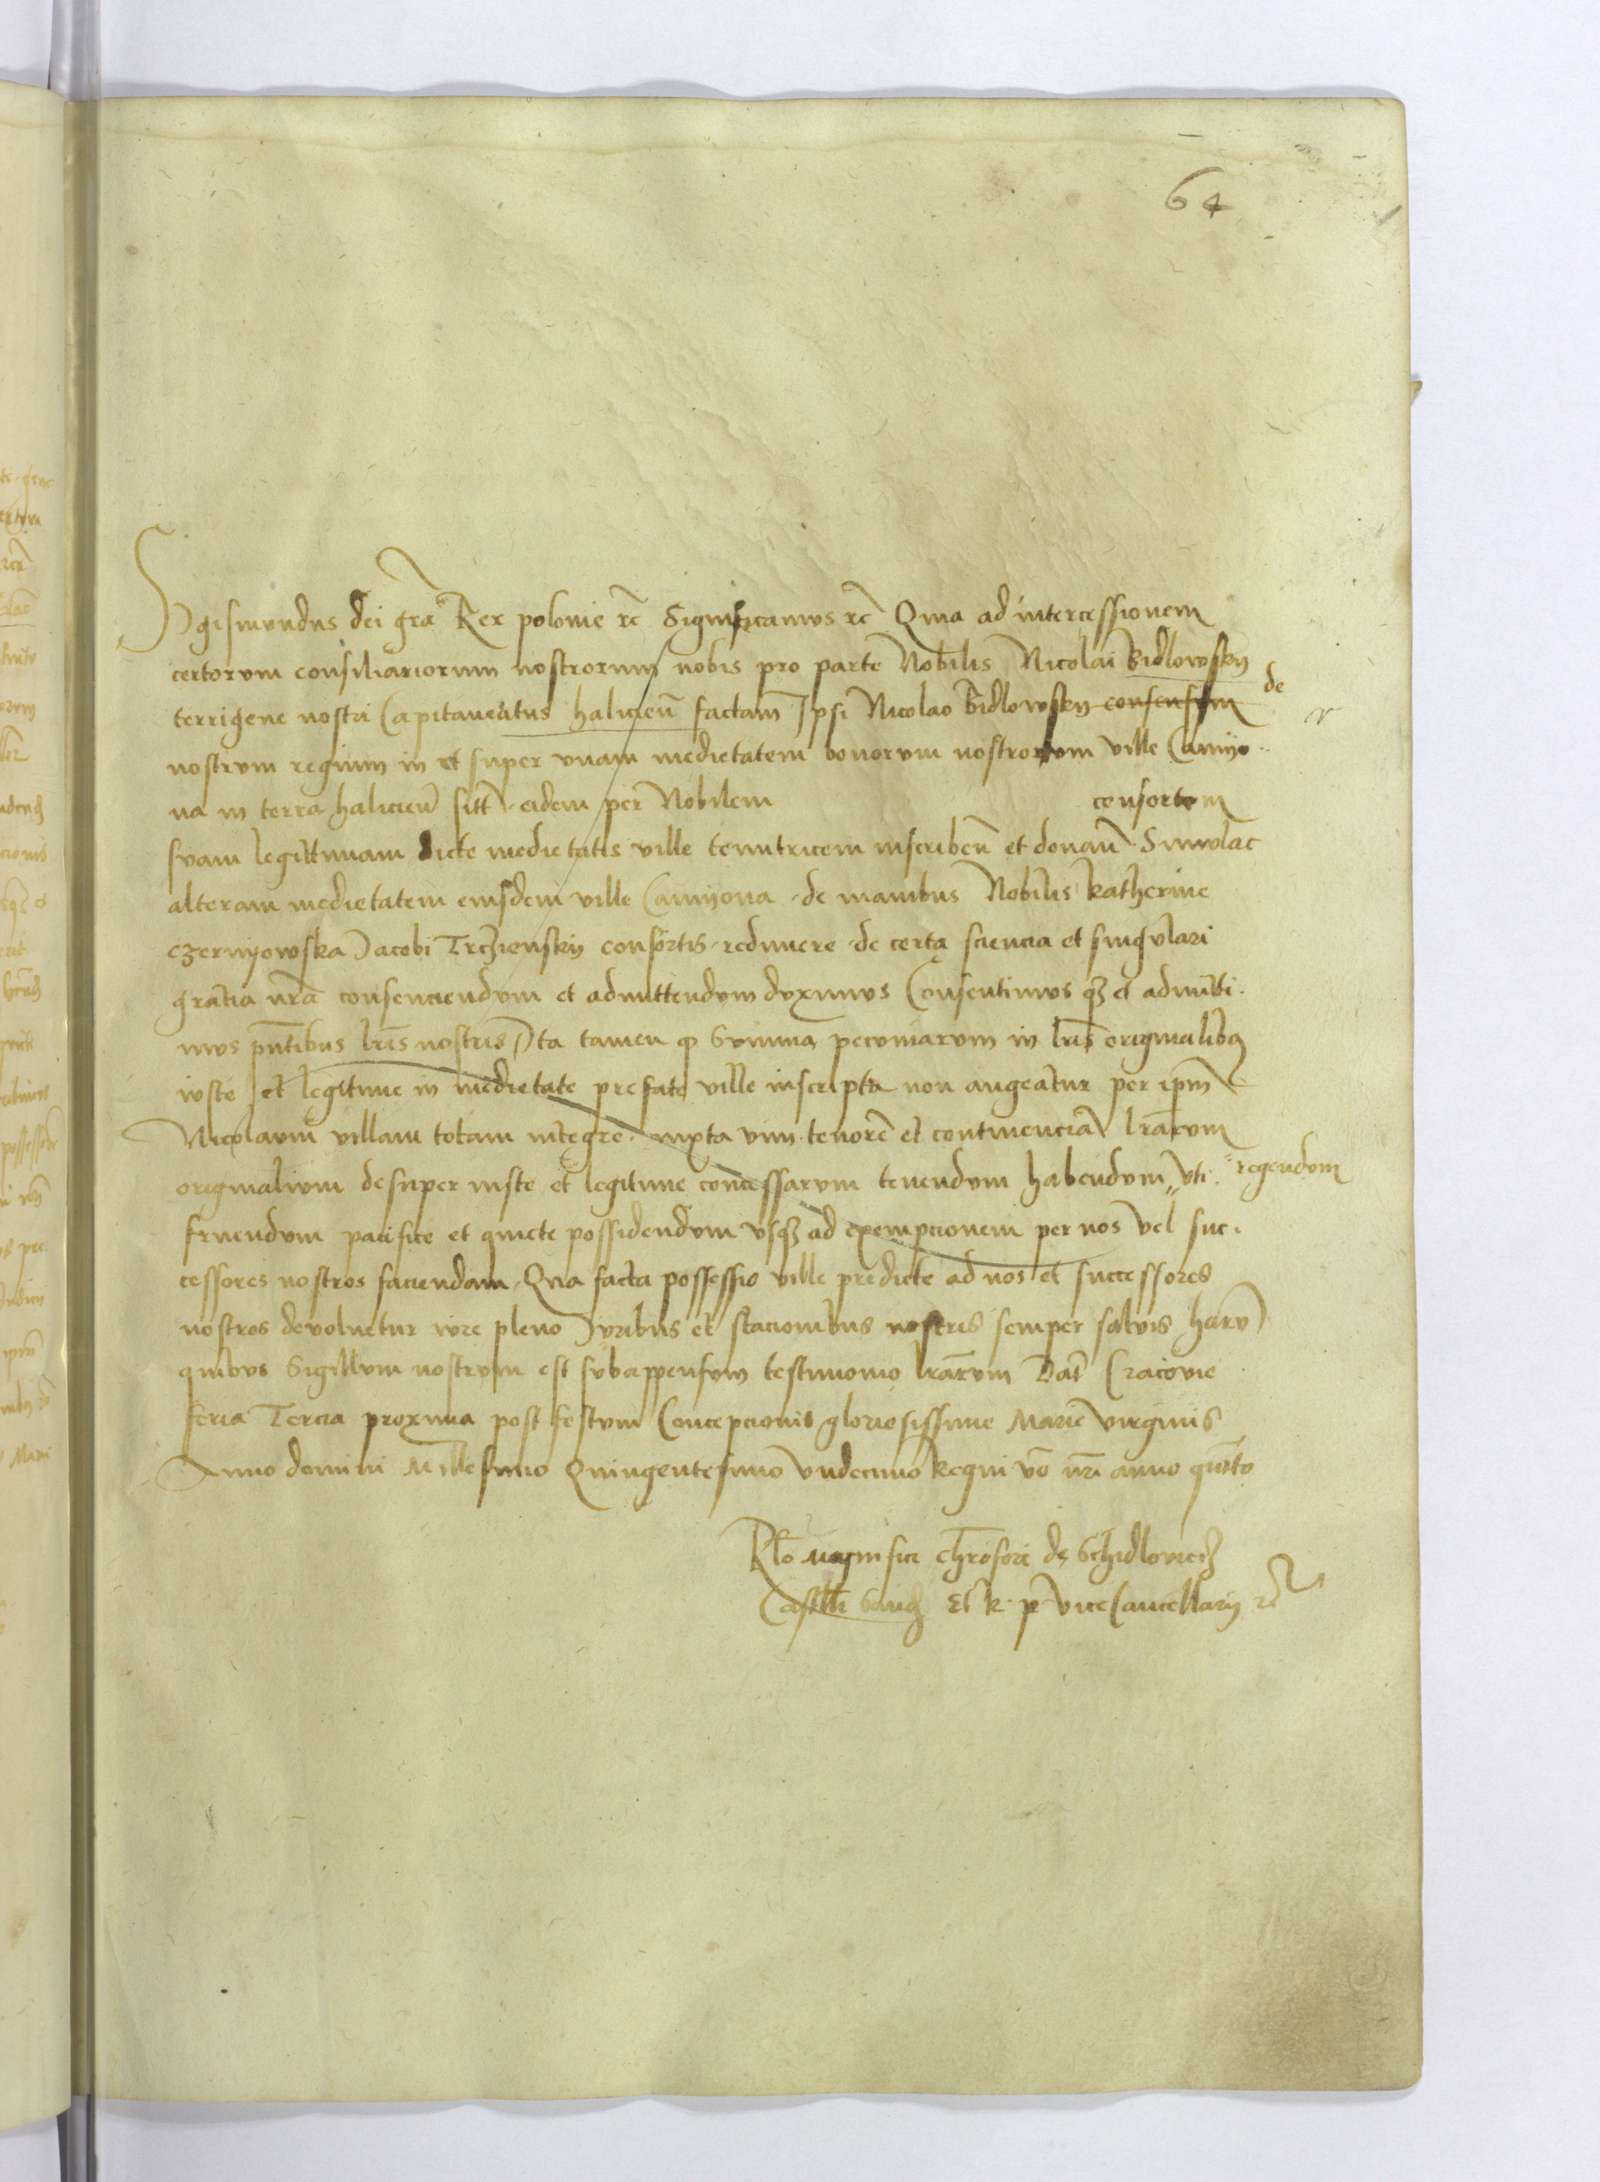 64
Sigismundus dei gr̄a Rex polonie rc̄ Significamus rc̄ Quia ad intercessionem
certorum consiliariorum nostrorum nobis pro parte Nobilis Nicolai Bidlowsky
terrigene nostri Capitaneatus halicien̄ factam Ipsi Nicolao Bidlowsky consensum de
nostrum regium in et super unam medietatem bonorum nostrorum ville Camyo
na in terra halicien̄ sitt̄ eidem per Nobilem consortem
suam legittimam dicte medietatis ville tenutricem inscriben̄ et donan̄ Simulac
alteram medietatem eiusdem ville Camyona de manibus Nobilis katherine
czernyowska Jacobi Trcziensky consortis redimere de certa sciencia et singulari
gratia nr̄a consenciendum et admittendum duximus Consentimus qȝ et admitti
mus pn̄tibus lr̄is nostris Ita tamen q Summa pecuniarum in lr̄is originalibȝ
iuste et legitime in medietate prefate ville inscripta non augeatur per ip̄m
Nicolaum villam totam integre iuxta vim tenorē et continenciā lr̄arum
originalium desuper iuste et legitime concessarum tenendum habendum uti regendum
fruendum pacifice et quiete possidendum usqȝ ad exempcionem per nos vel suc
cessores nostros faciendam Qua facta possessio ville predicte ad nos et successores
nostros devoluetur iure pleno Juribus et stacionibus nostris semper salvis harū
quibus Sigillum nostrum est subappensum testimonio lr̄arum Dat̄ Cracovie
feria Tercia proxima post festum Concepcionis gloriosissime Marie virginis
Anno domini Millesimo Quingentesimo undecimo Regni vō nr̄i anno quīto
Rlō Magnifici Chrōferi de Schidlovyecz
Castell̄i Sand̄ Et R. p. viceCancellarij rc̄